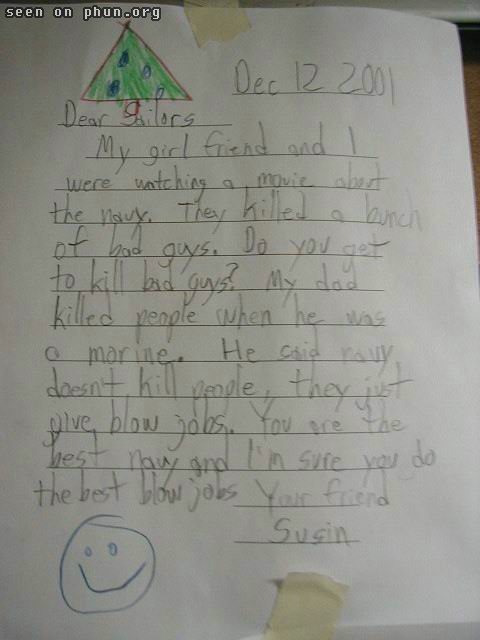 seen on phun.org
Dec 12 2001
Dear Sailors
My girl friend and I
were watching a movie about
the navy. They killed a bunch
of bad guys. Do you get
to kill bad guys? My dad
killed people when he was
a marine. He said navy
doesn't kill people, they just
give blow jobs. You are the
best navy and I'm sure you do
the best blow jobs Your friend
Susin